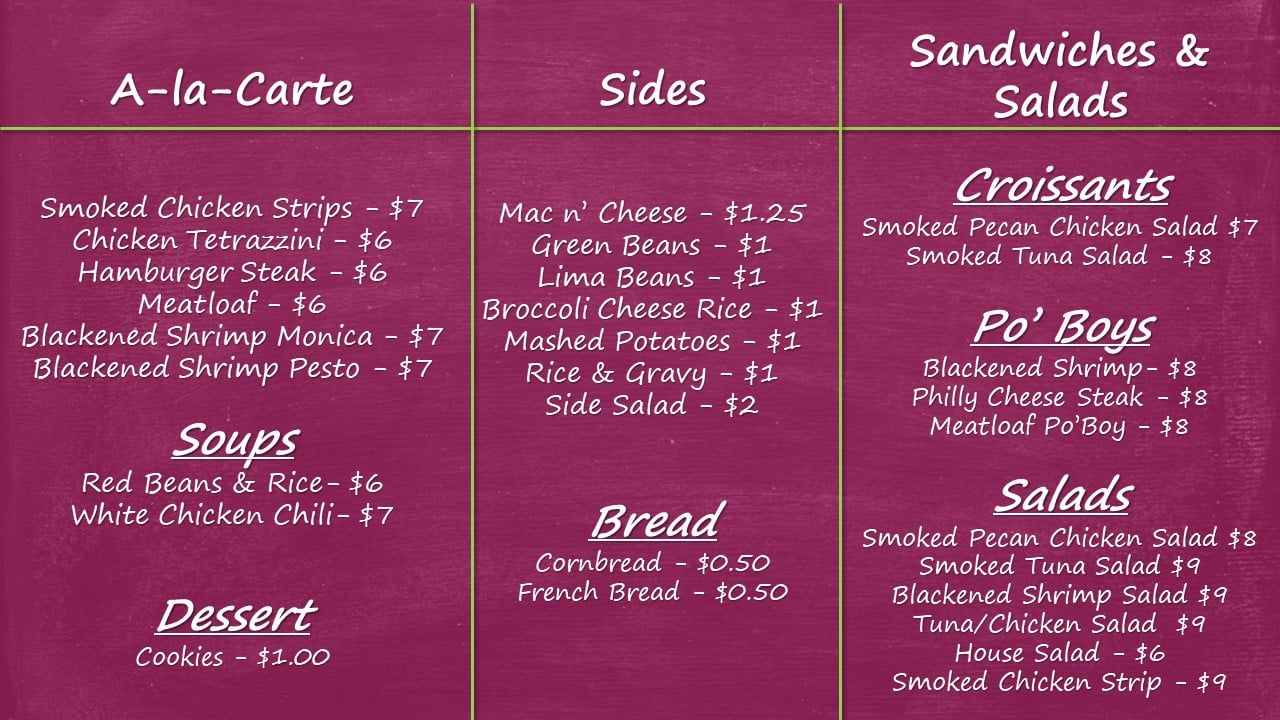 A-la-Carte
Smoked Chicken Strips - $7
Chicken Tetrazzini - $6
Hamburger Steak - $6
Meatloaf - $6
Blackened Shrimp Monica - $7
Blackened Shrimp Pesto - $7
Soups
Red Beans & Rice- $6
White Chicken Chili- $7
Dessert
Cookies - $1.00
Sides
Mac n’ Cheese - $1.25
Green Beans - $1
Lima Beans - $1
Broccoli Cheese Rice - $1
Mashed Potatoes - $1
Rice & Gravy - $1
Side Salad - $2
Bread
Cornbread - $0.50
French Bread - $0.50
Sandwiches &
Salads
Croissants
Smoked Pecan Chicken Salad $7
Smoked Tuna Salad - $8
Po’ Boys
Blackened Shrimp- $8
Philly Cheese Steak - $8
Meatloaf Po’Boy - $8
Salads
Smoked Pecan Chicken Salad $8
Smoked Tuna Salad $9
Blackened Shrimp Salad $9
Tuna/Chicken Salad $9
House Salad - $6
Smoked Chicken Strip - $9